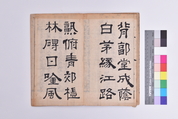 背郭堂成蔭
白茅緣江路
熟俯青郊榿
林礙日吟風